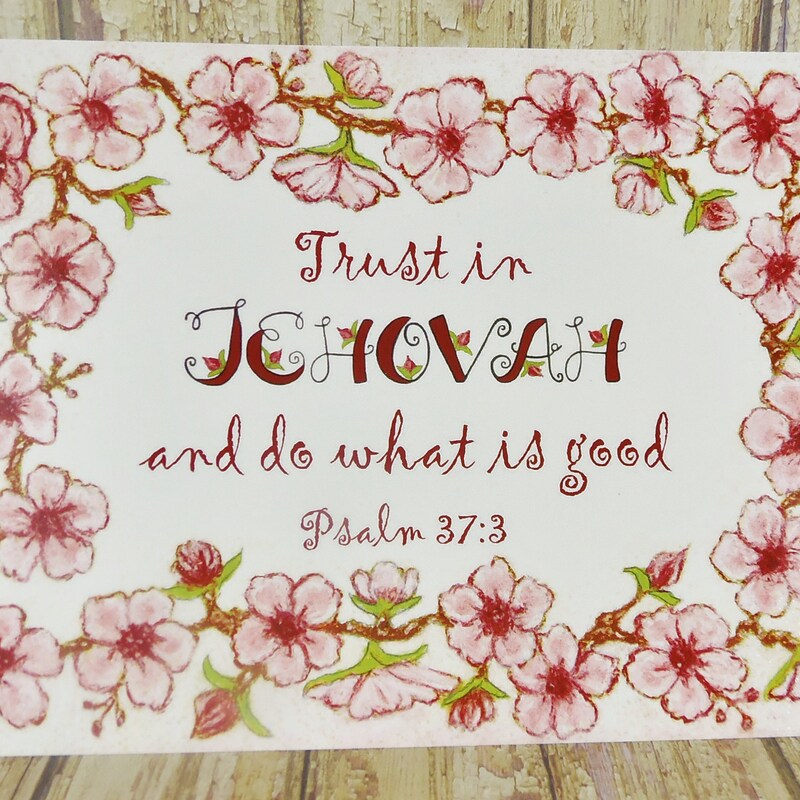 Trust in
JEHOVAH
and do what is good
Psalm 37:3